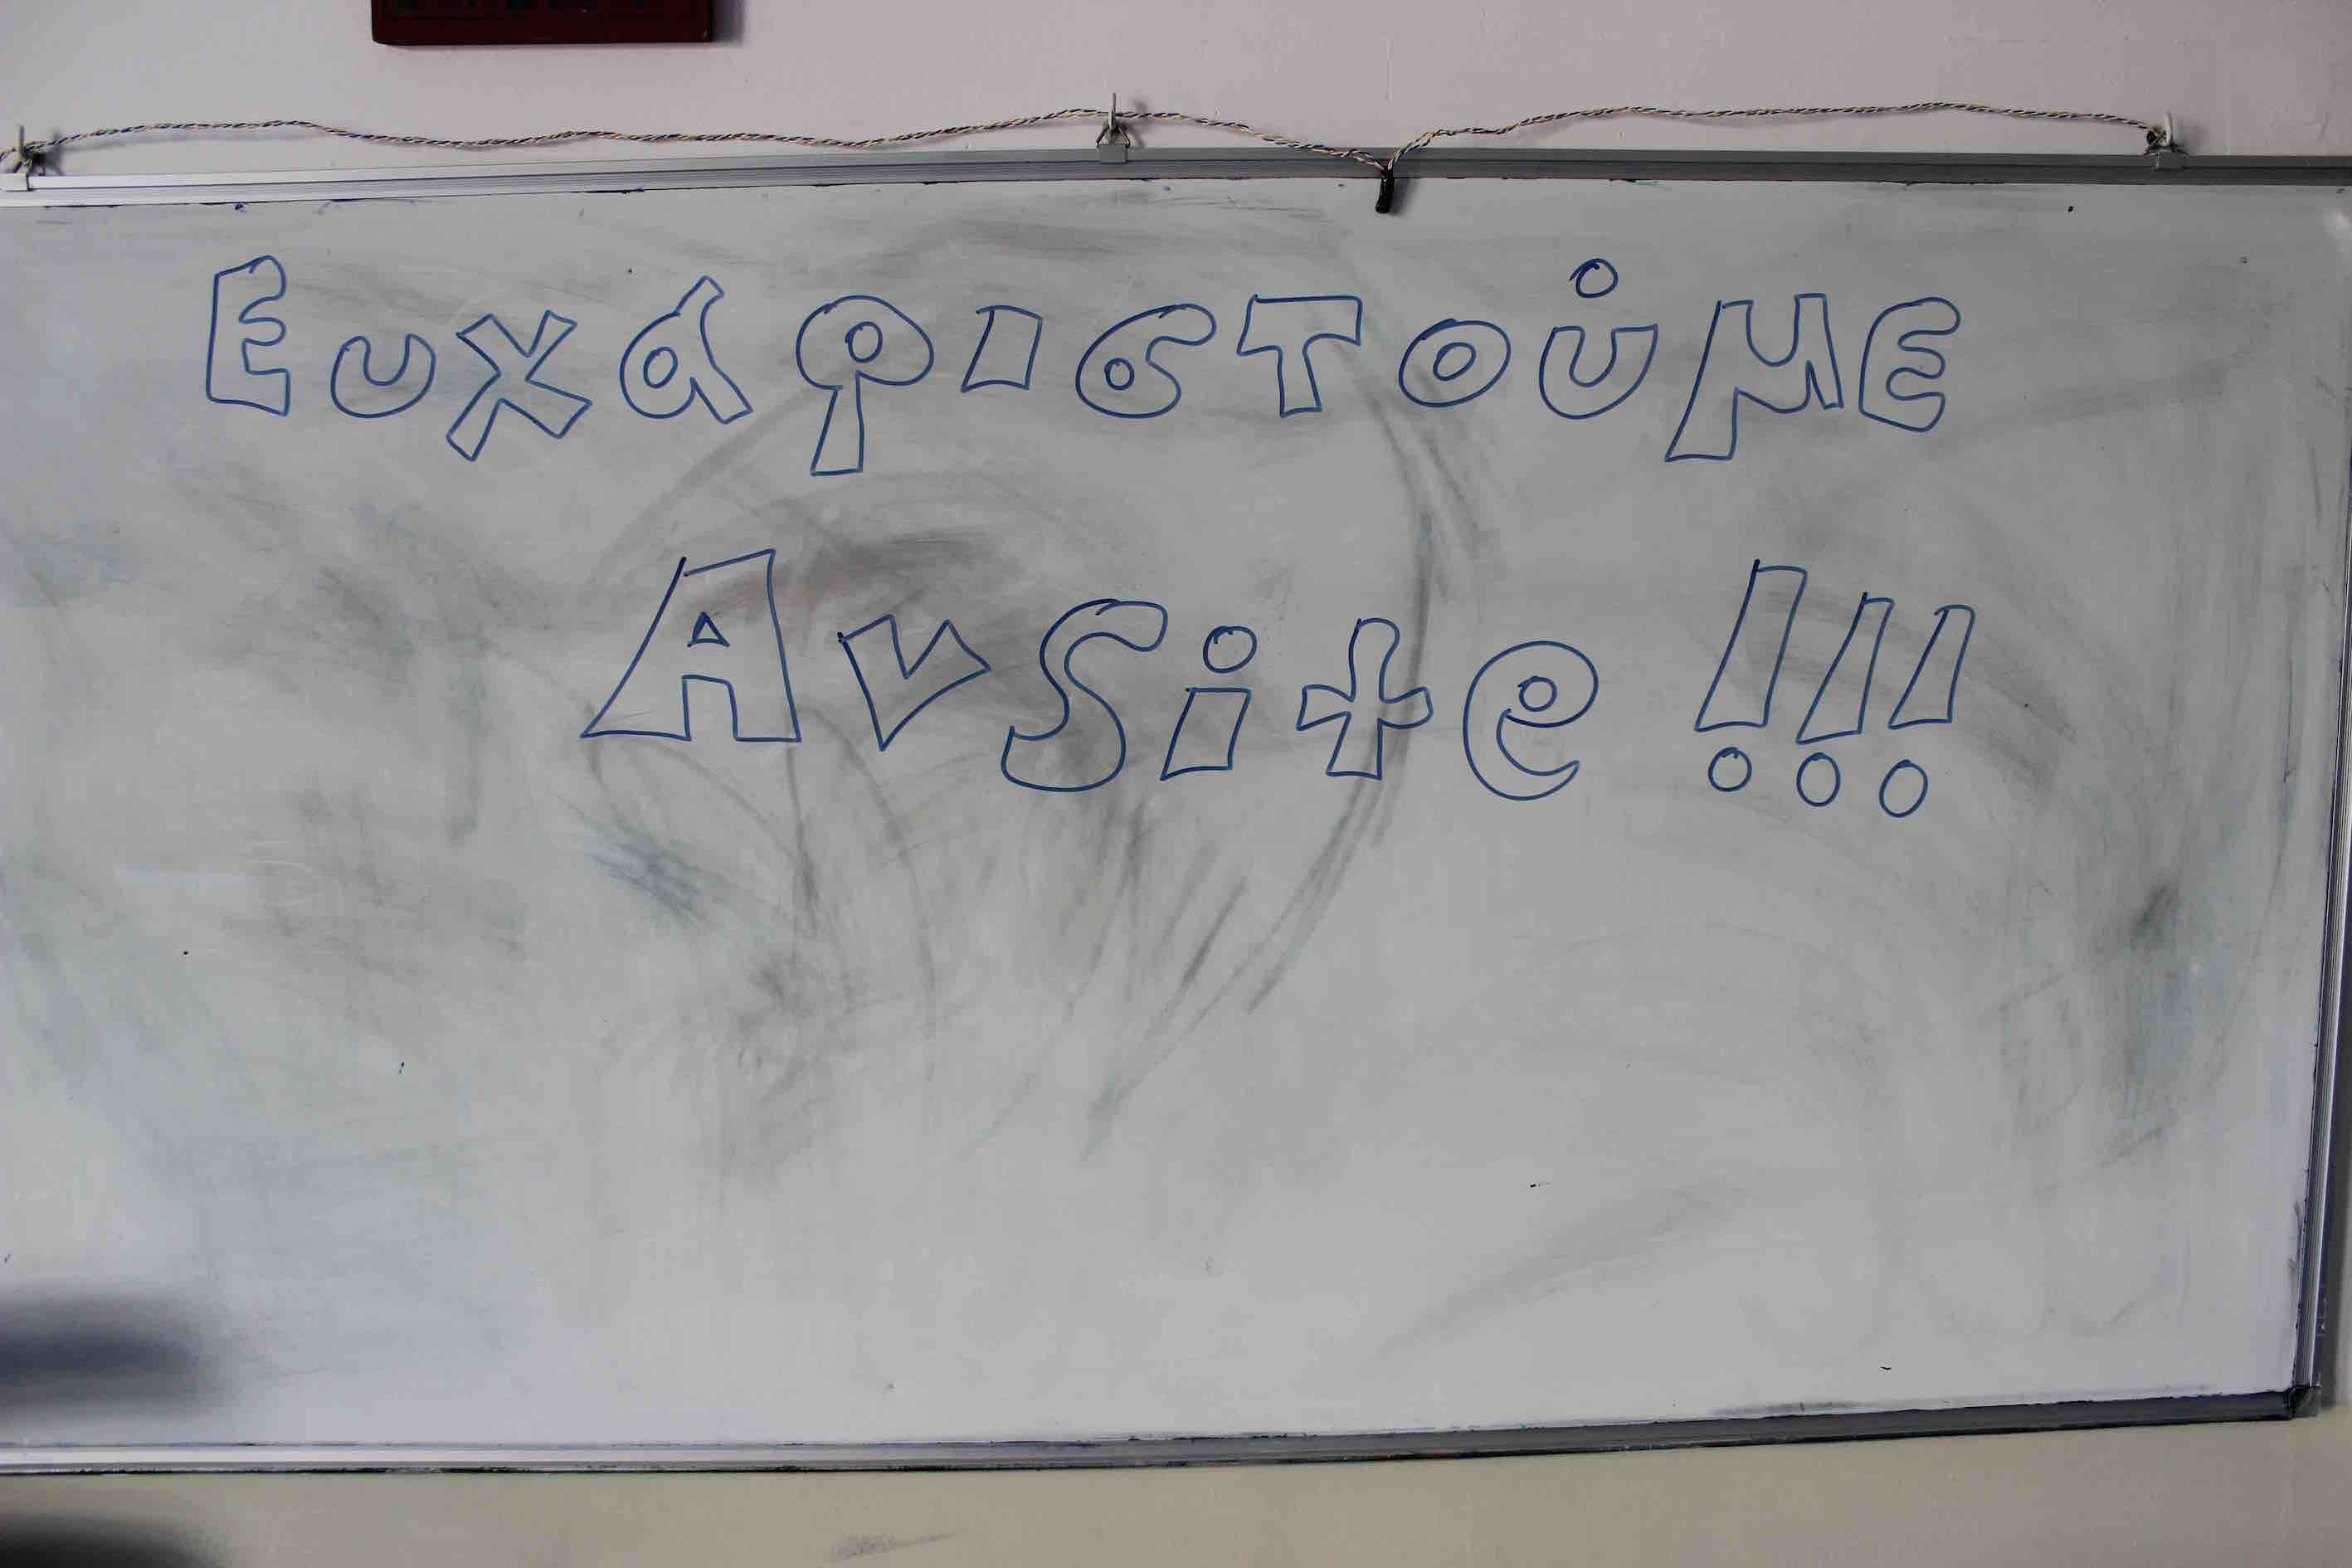 Ευχαριστούμε
AvSite !!!